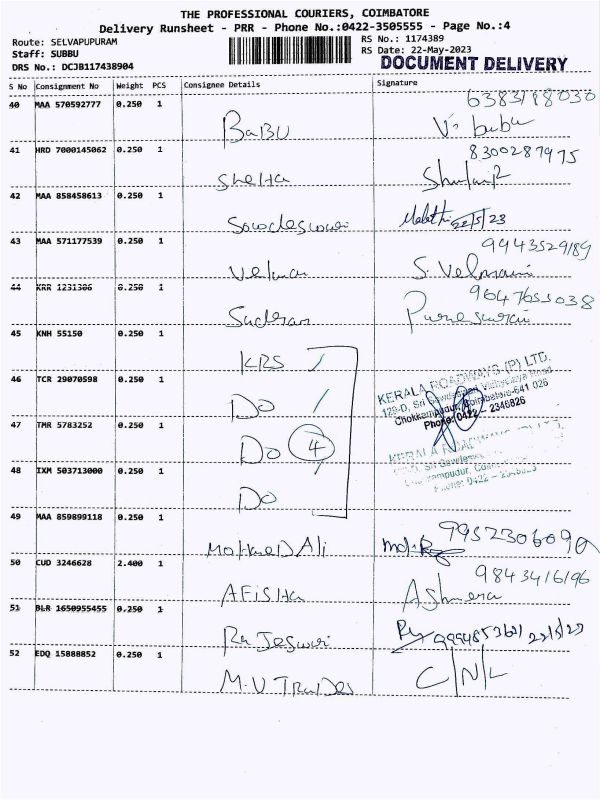 THE PROFESSIONAL COURIERS, COIMBATORE
Delivery Runsheet - PRR - Phone No.:0422-3505555 - Page No.:4
Route: SELVAPUPURAM
RS No.: 1174389
Staff: SUBBU
RS Date: 22-May-2023
DRS No.: DCJB117438904
DOCUMENT DELIVERY
S No Consignment No Weight PCS Consignee Details Signature
6383198030
40 MAA 570592777 0.250 1
BABU V. babu
8300287975
41 HRD 7000145062 0.250 1
Shelta
42 MAA 858458613 0.250 1
Malathi 22/5/23
43 MAA 571177539 0.250 1 9443529189
Velman S. Velmani
44 KRR 1231306 0.250 1 9647653038
45 KNH 55150 0.250 1
KRS
46 TCR 29070598 0.250 1
KERALA ROADWAYS (P) LTD.
Do
Coimbatore-641 026
47 TMR 5783252 0.250 1
Phone: 0422 - 2346826
Do 4
48 IXM 503713000 0.250 1
Do
49 MAA 859899118 0.250 1
9952306090
Mohmed Ali
50 CUD 3246628 2.400 1 9843416196
Afisha
51 BLR 1650955455 0.250 1
Rajeswari
52 EDQ 15888852 0.250 1
M.V Traders C/N/L